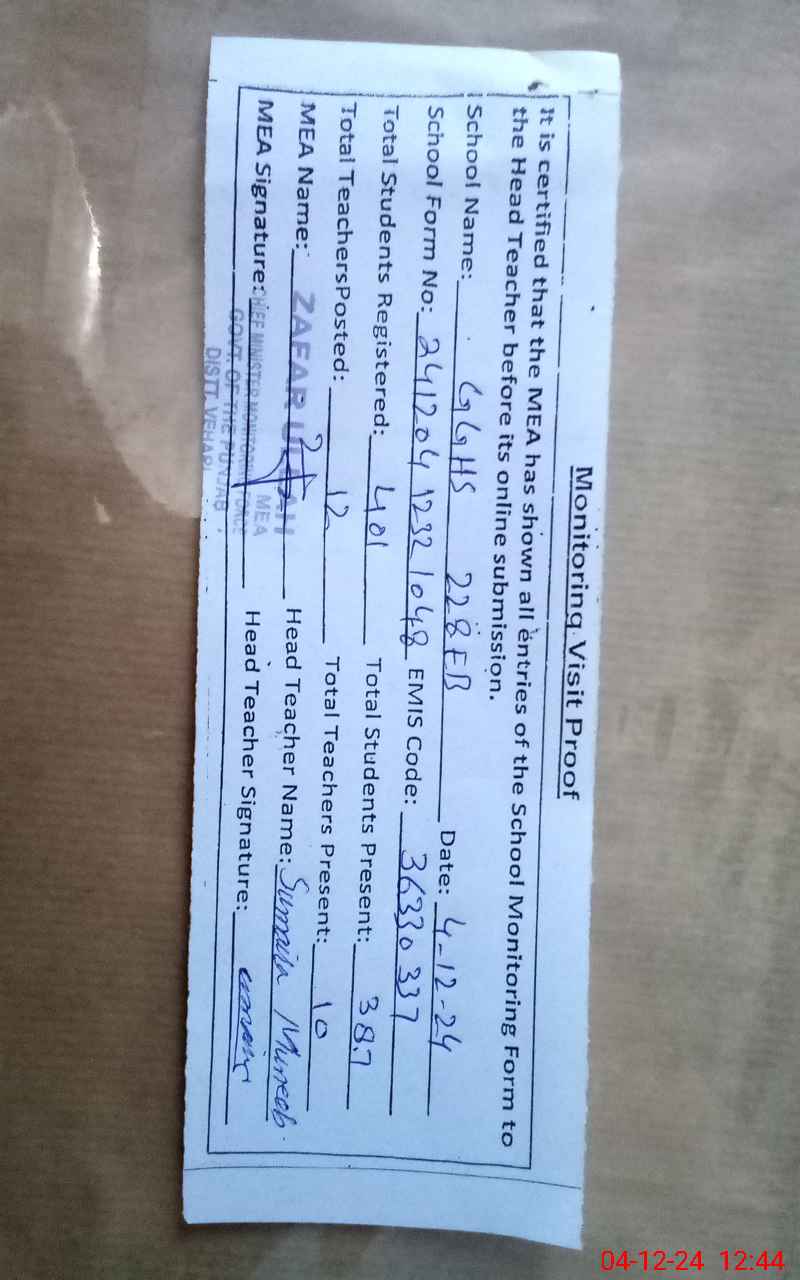 Monitoring Visit Proof
It is certified that the MEA has shown all entries of the School Monitoring Form to
the Head Teacher before its online submission.
School Name: GGHS 228EB Date: 4-12-24
School Form No: 241204 12321048 EMIS Code: 36330337
Total Students Registered: 401 Total Students Present: 387
Total TeachersPosted: 12 Total Teachers Present: 10
MEA Name: ZAFAR ULLAH Head Teacher Name: Sumaila Muneeb
MEA Signature: Head Teacher Signature:
MEA
CHIEF MINISTER MONITORING FORCE
GOVT. OF THE PUNJAB
DISTT. VEHARI
04-12-24 12:44